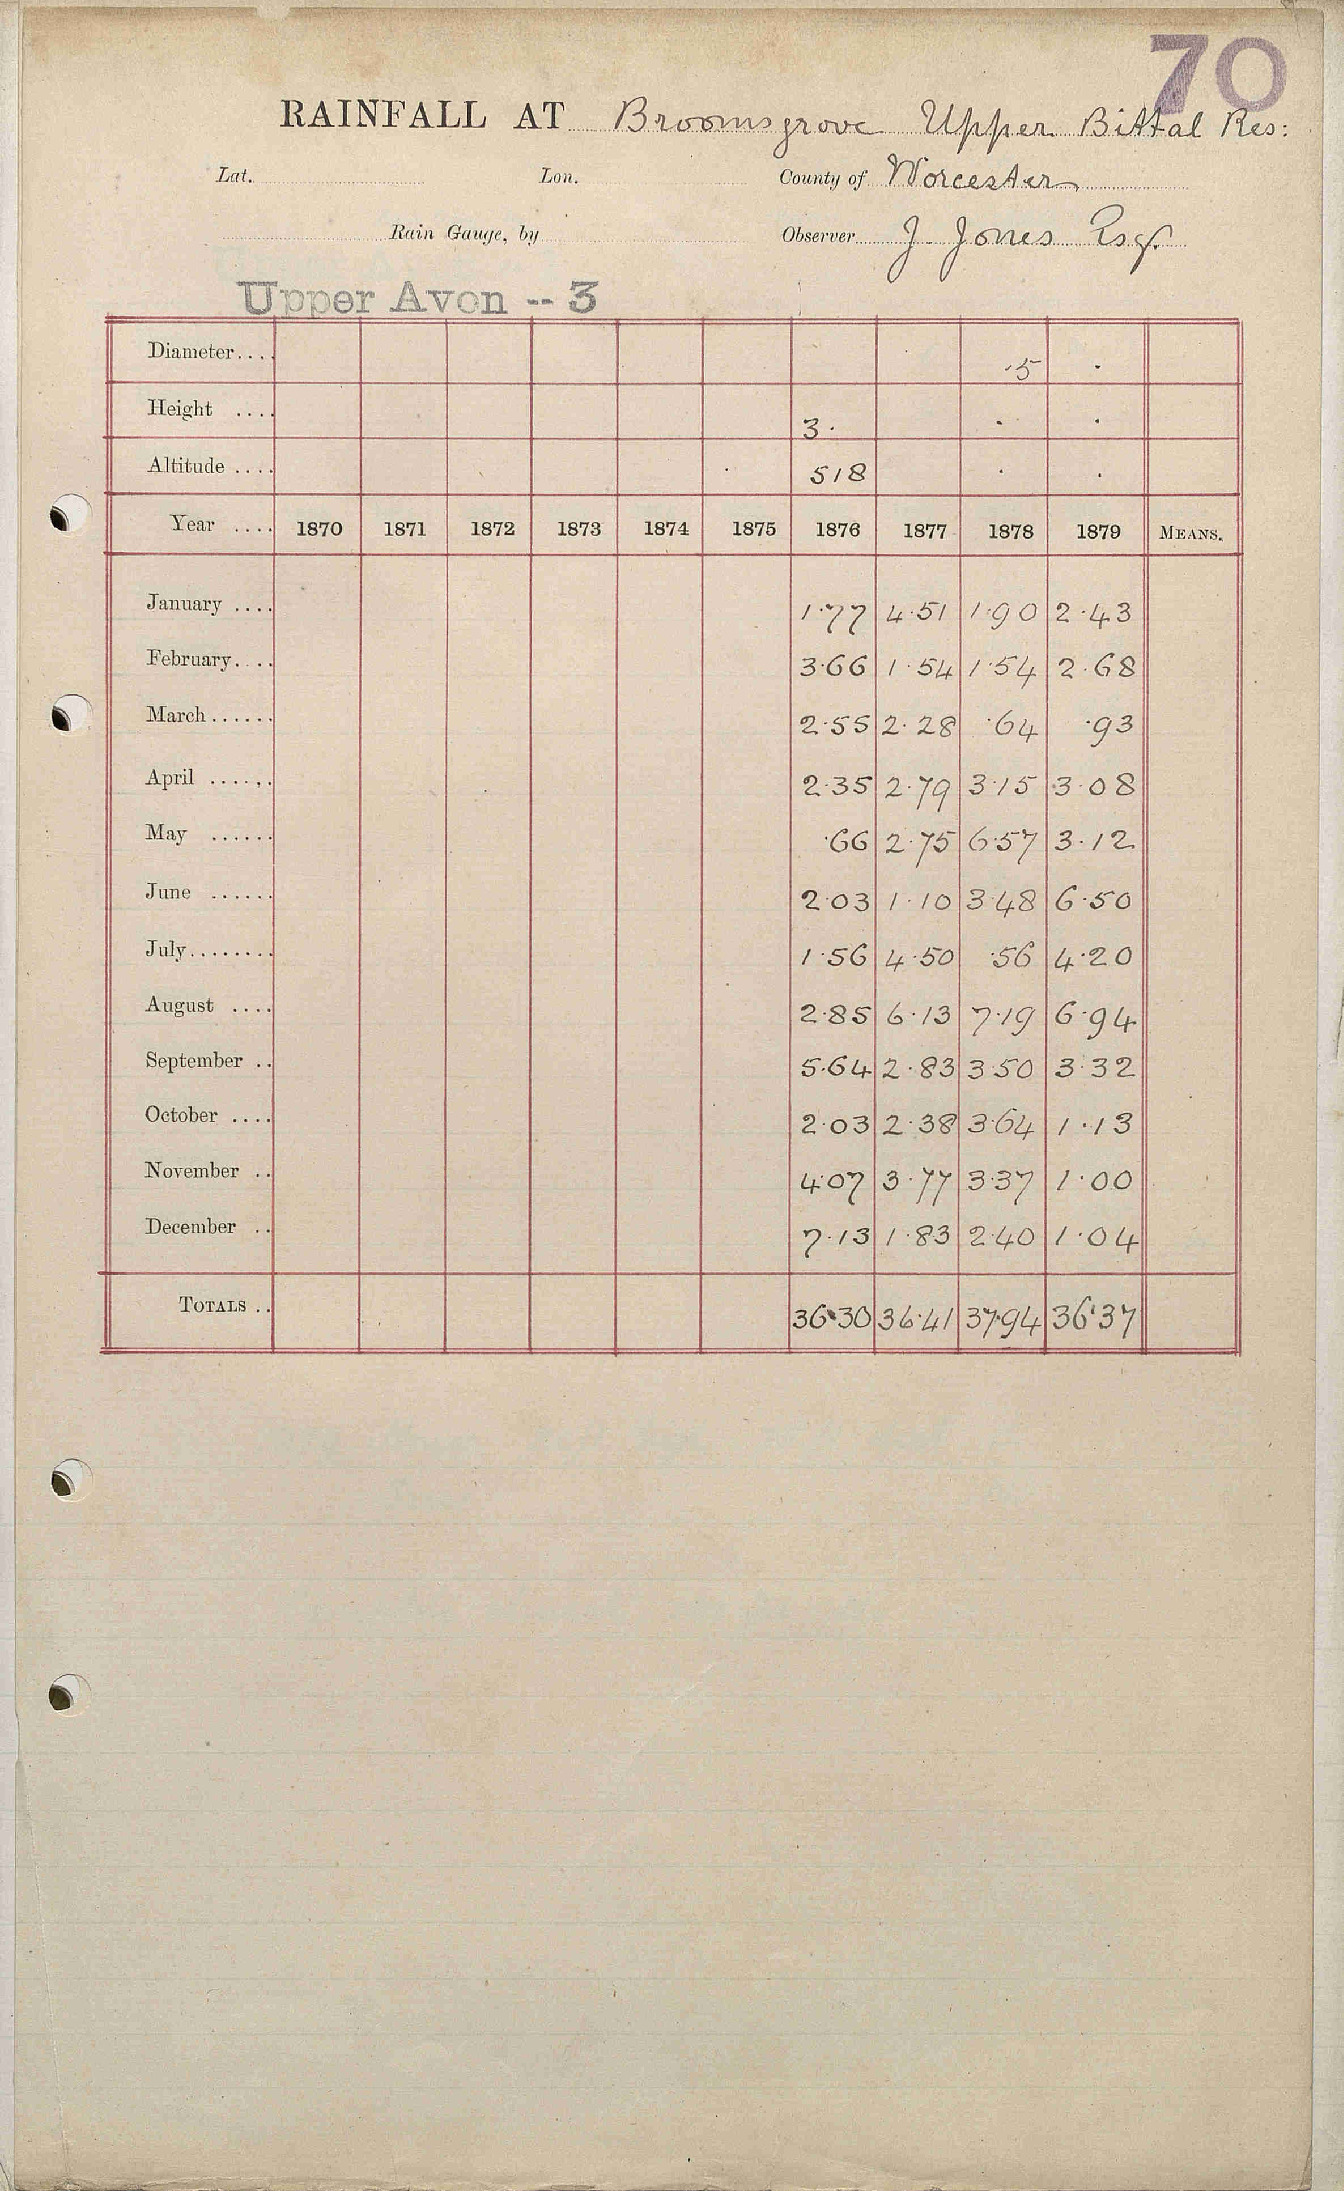 70
RAINFALL AT Bromsgrove Upper Bittal Res:
Lat. Lon. County of Worcester
Rain Gauge, by Observer J Jones Esq.
Upper Avon -- 3
Diameter.... ·5 ·
Height .... 3· · ·
Altitude .... · 518 · ·
Year .... 1870 1871 1872 1873 1874 1875 1876 1877 1878 1879 MEANS.
January .... 1·77 4·51 1·90 2·43
February.... 3·66 1·54 1·54 2·68
March...... 2·55 2·28 ·64 ·93
April ...... 2·35 2·79 3·15 3·08
May ...... ·66 2·75 6·57 3·12
June ...... 2·03 1·10 3·48 6·50
July........ 1·56 4·50 ·56 4·20
August .... 2·85 6·13 7·19 6·94
September .. 5·64 2·83 3·50 3·32
October .... 2·03 2·38 3·64 1·13
November .. 4·07 3·77 3·37 1·00
December .. 7·13 1·83 2·40 1·04
TOTALS .. 36·30 36·41 37·94 36·37